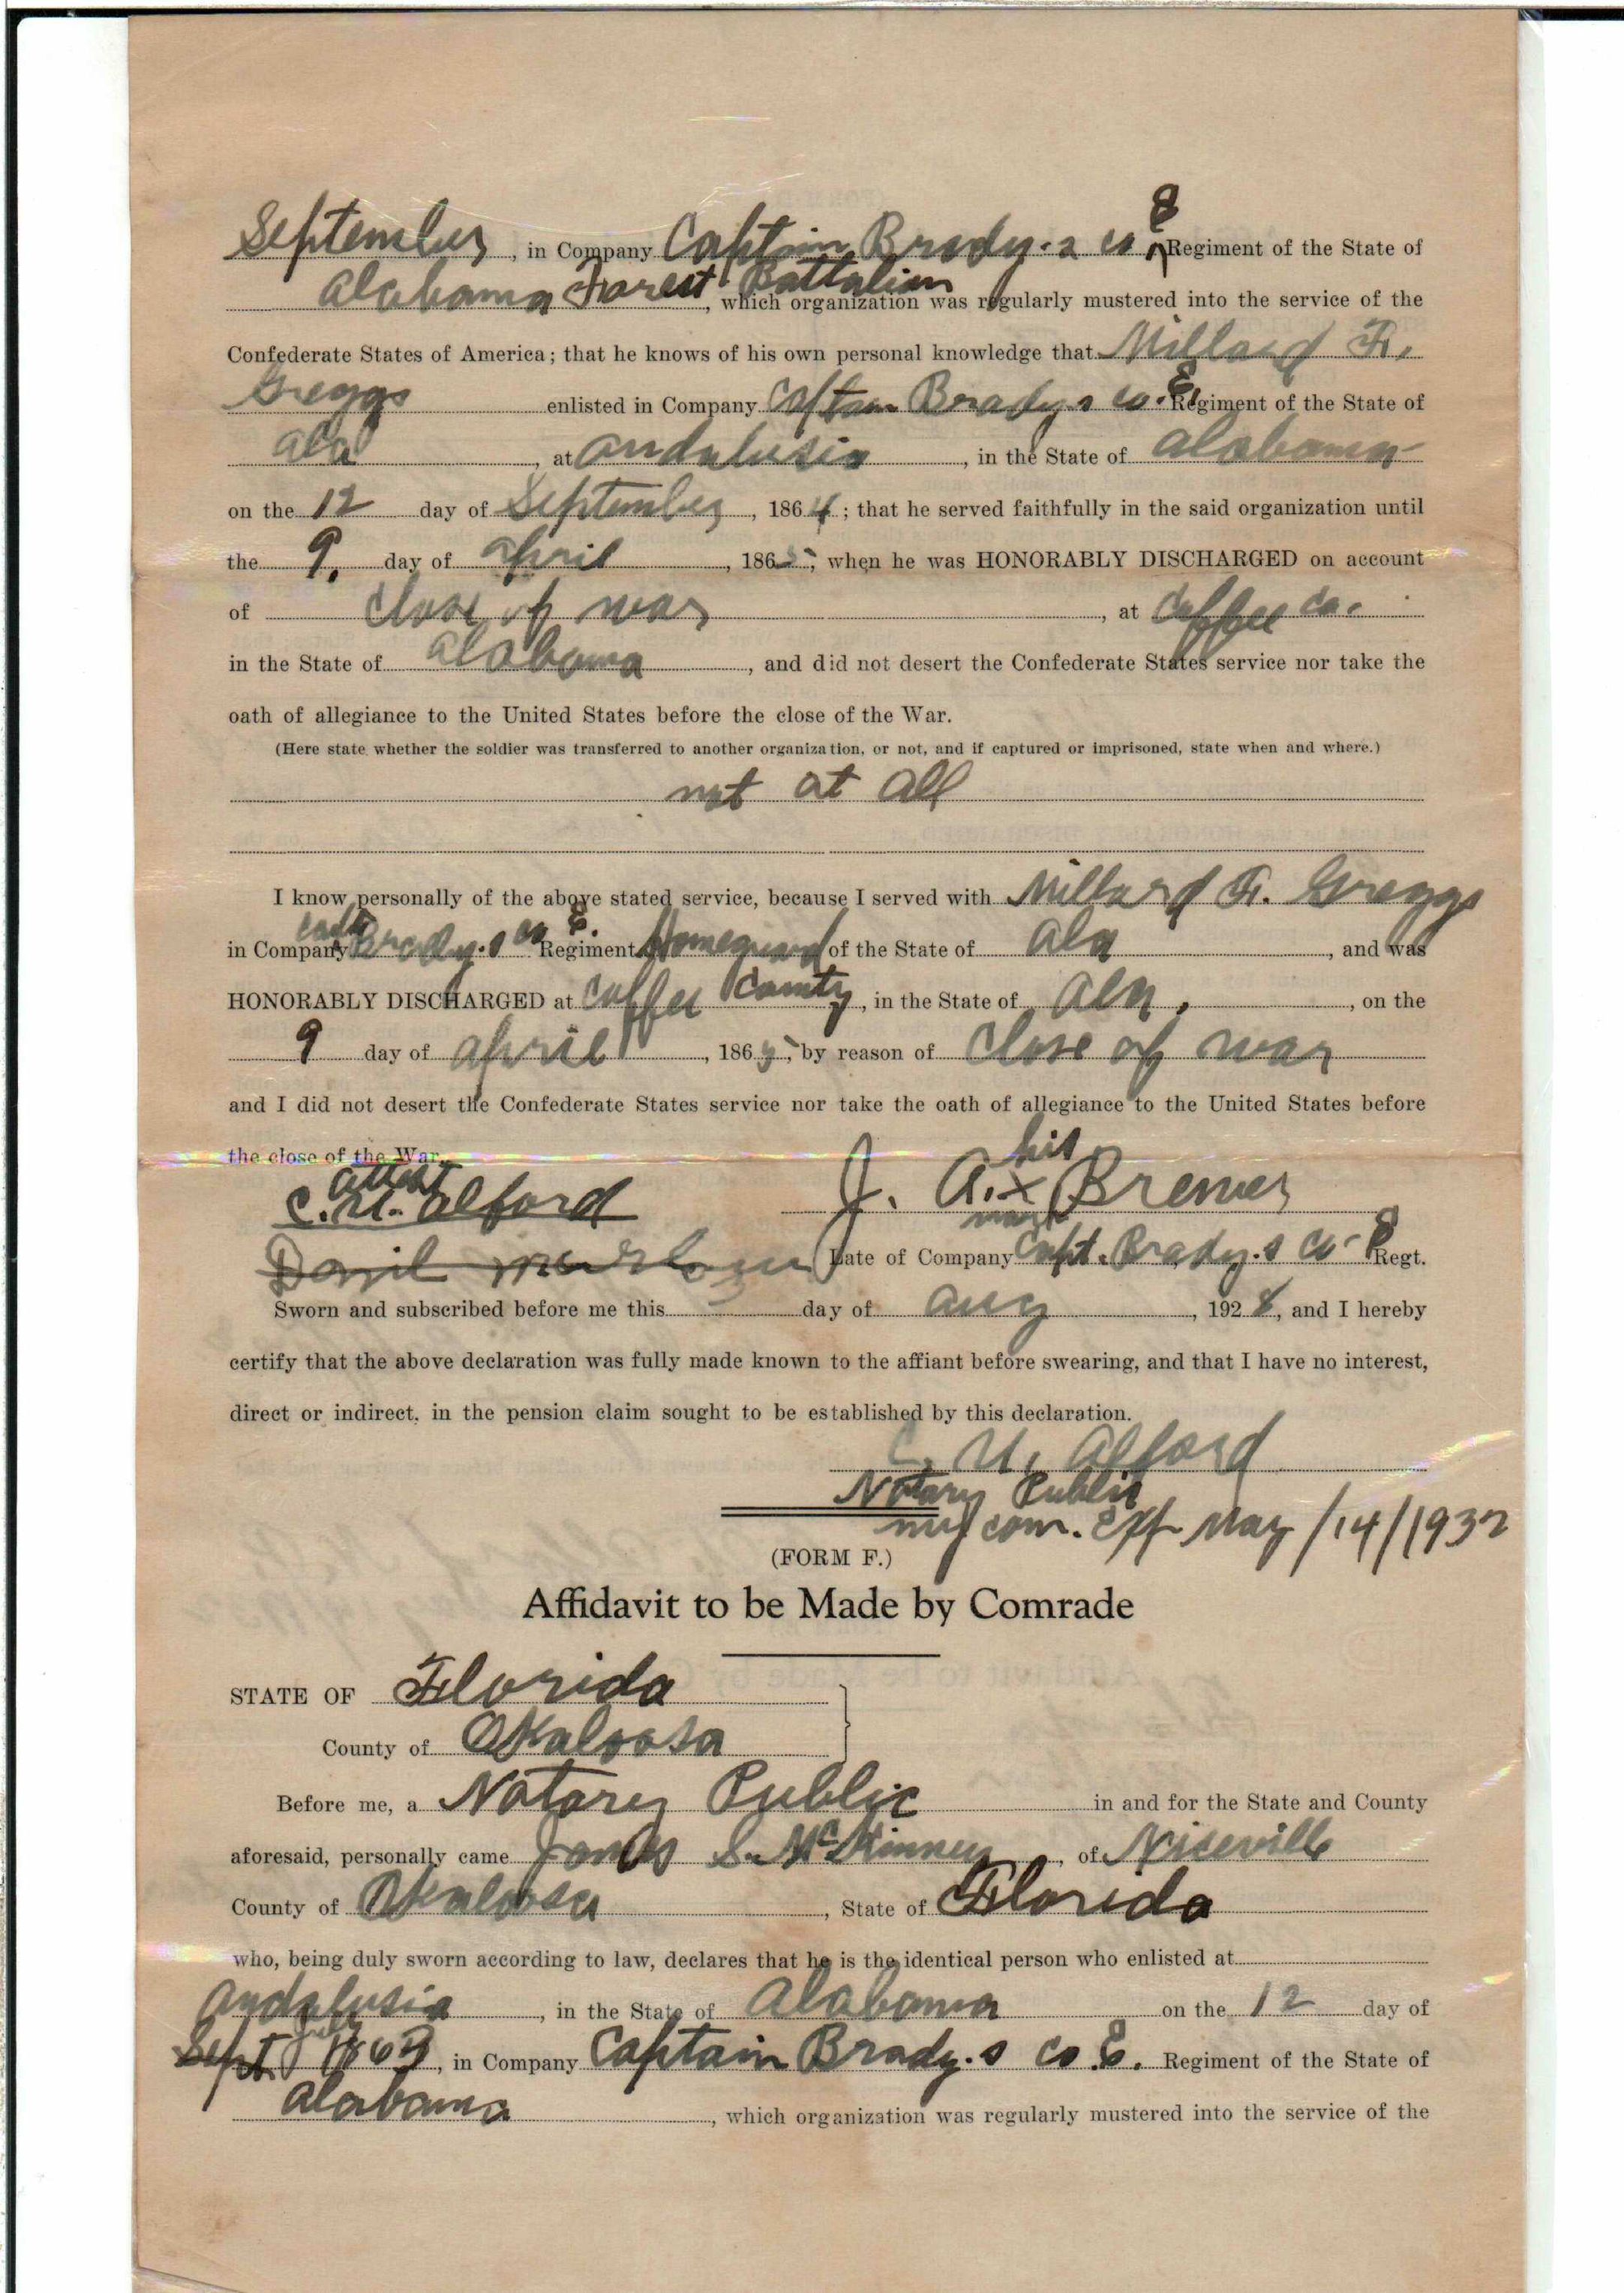 September, in Company Captain Brady.s co E Regiment of the State of
Alabama Forest Battalion, which organization was regularly mustered into the service of the
Confederate States of America; that he knows of his own personal knowledge that Millard F.
Greggs enlisted in Company Captain Brady.s co. E. Regiment of the State of
Ala, at Andalusia, in the State of Alabama
on the 12 day of September, 1864; that he served faithfully in the said organization until
the 9. day of April, 1865, when he was HONORABLY DISCHARGED on account
of Close of war, at Coffee Co.
in the State of Alabama, and did not desert the Confederate States service nor take the
oath of allegiance to the United States before the close of the War.
(Here state whether the soldier was transferred to another organization, or not, and if captured or imprisoned, state when and where.)
not at all
I know personally of the above stated service, because I served with Millard F. Greggs
in Company Capt Brady.s co E. Regiment Homeguard of the State of Ala, and was
HONORABLY DISCHARGED at Coffee County, in the State of Ala., on the
9 day of April, 1865, by reason of Close of war
and I did not desert the Confederate States service nor take the oath of allegiance to the United States before
the close of the War.
attest
his
C. U. Alford J. A. x Brewer
mark
Late of Company Capt. Brady.s Co- E Regt.
Sworn and subscribed before me this day of Aug, 1928, and I hereby
certify that the above declaration was fully made known to the affiant before swearing, and that I have no interest,
direct or indirect, in the pension claim sought to be established by this declaration.
C. U. Alford
Notary Public
my com. Exp May/14/1932
(FORM F.)
Affidavit to be Made by Comrade
STATE OF Florida
County of Okaloosa
Before me, a Notary Public in and for the State and County
aforesaid, personally came James S. McKinney, of Niceville
County of Okaloosa, State of Florida
who, being duly sworn according to law, declares that he is the identical person who enlisted at
Andalusia, in the State of Alabama on the 12 day of
July
Sept 1863, in Company Captain Brady.s co E. Regiment of the State of
Alabama, which organization was regularly mustered into the service of the